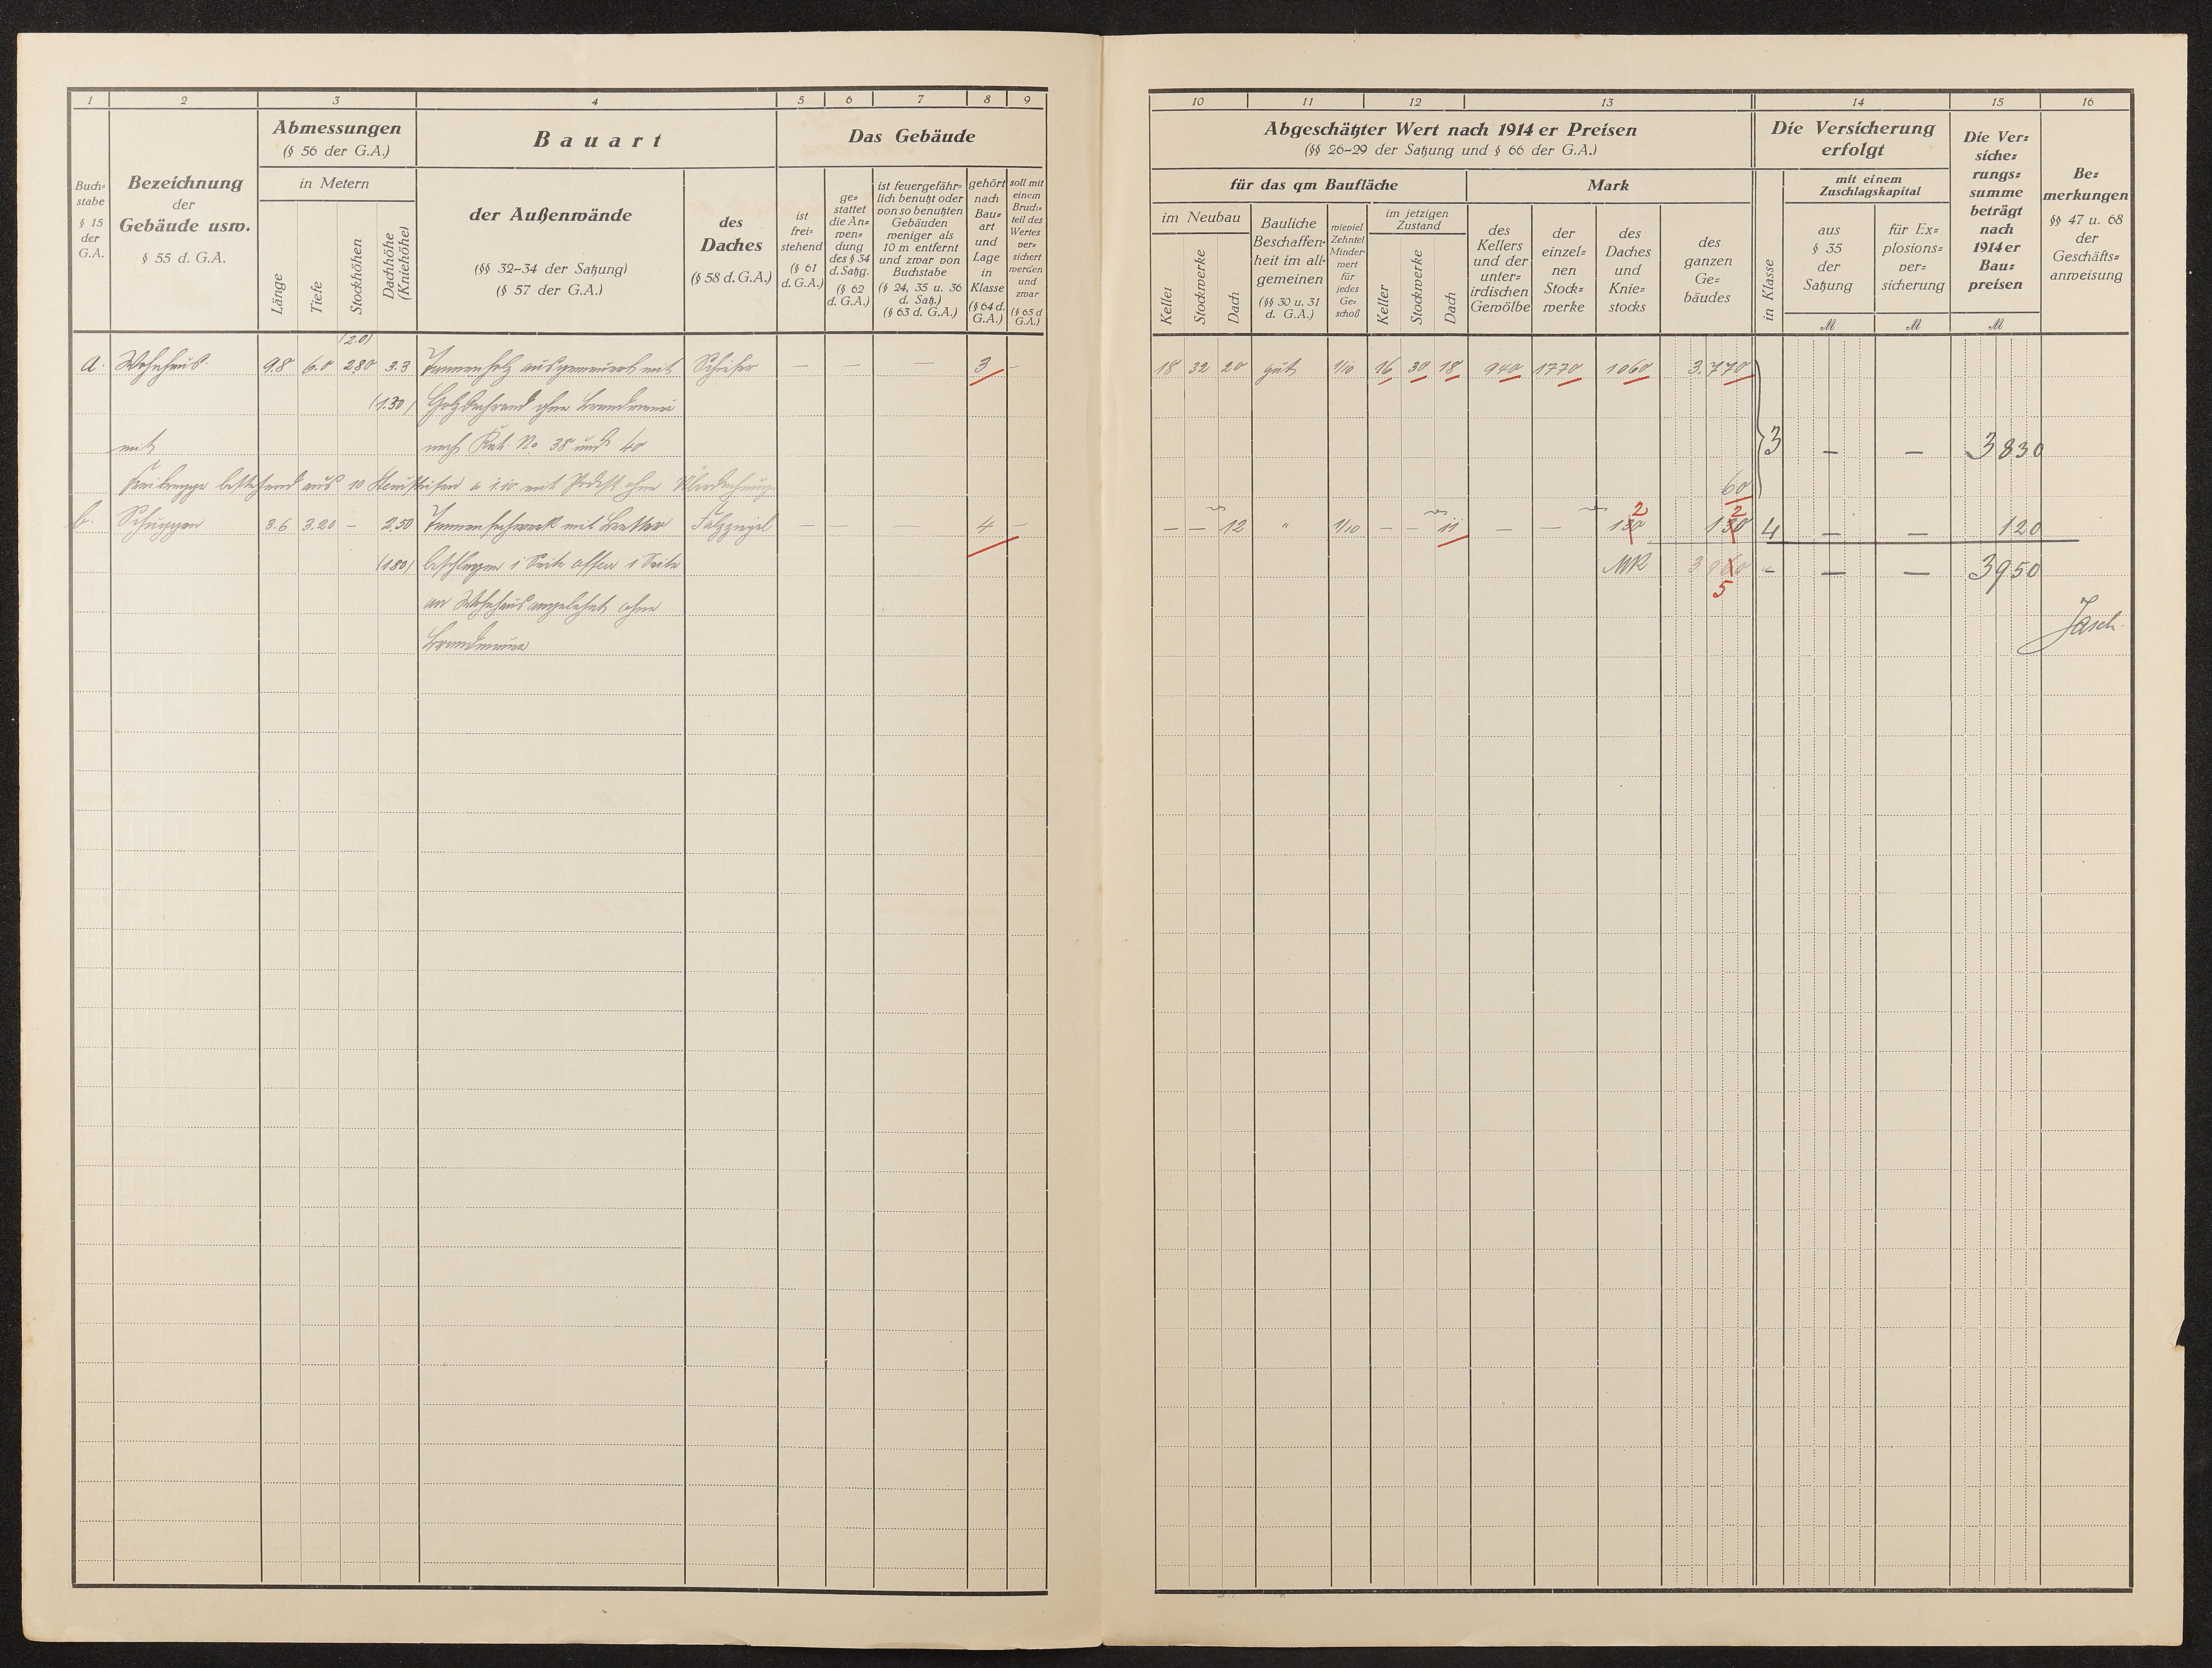 1 2 3 4 5 6 7 8 9
Buch=
stabe
§ 15
der
G.A.
Bezeichnung
der
Gebäude usw.
§ 55 d. G.A.
Abmessungen
(§ 56 der G.A.)
in Metern
Länge
Tiefe
Stockhöhen
Dachhöhe
(Kniehöhe)
Bauart
der Außenwände
(§§ 32–34 der Satzung)
(§ 57 der G.A.)
des
Daches
(§ 58 d. G.A.)
Das Gebäude
ist
frei=
stehend
(§ 61
d. G.A.)
ge=
stattet
die An=
wen=
dung
des § 34
d. Satzg.
(§ 62
d. G.A.)
ist feuergefähr=
lich benutzt oder
von so benutzten
Gebäuden
weniger als
10 m entfernt
und zwar von
Buchstabe
(§ 24, 35 u. 36
d. Satz.)
(§ 63 d. G.A.)
gehört
nach
Bau=
art
und
Lage
in
Klasse
(§ 64 d.
G.A.)
soll mit
einem
Bruch=
teil des
Wertes
ver=
sichert
werden
und
zwar
(§ 65 d
G.A.)
(2.0)
a. Wohnhaus. 9.8 6.0 2.80 3.3 Tannenholz ausgemauert mit Schiefer — — — 3 —
(1.30) Holzdachrand ohne Brandmauer
mit nach Kat. No 38 und 40
Freitreppe bestehend aus 10 Steinstufen a 1.10 mit Podest ohne Überdachung.
b. Schuppen 3.6 3.20 — 2.50 Tannenfachwerk mit Bretter Falzziegel — — — 4 —
(1.80) beschlagen 1 Seite offen 1 Seite
an Wohnhaus angelehnt ohne
Brandmauer
10 11 12 13 14 15 16
Abgeschätzter Wert nach 1914 er Preisen
(§§ 26–29 der Satzung und § 66 der G.A.)
für das qm Baufläche
im Neubau
Keller
Stockwerke
Dach
Bauliche
Beschaffen=
heit im all=
gemeinen
(§§ 30 u. 31
d. G.A.)
wieviel
Zehntel
Minder=
wert
für
jedes
Ge=
schoß
im jetzigen
Zustand
Keller
Stockwerke
Dach
Mark
des
Kellers
und der
unter=
irdischen
Gewölbe
der
einzel=
nen
Stock=
werke
des
Daches
und
Knie=
stocks
des
ganzen
Ge=
bäudes
Die Versicherung
erfolgt
in Klasse
mit einem
Zuschlagskapital
aus
§ 35
der
Satzung
für Ex=
plosions=
ver=
sicherung
Die Ver=
siche=
rungs=
summe
beträgt
nach
1914 er
Bau=
preisen
Be=
merkungen
§§ 47 u. 68
der
Geschäfts=
anweisung
M M M
18 32 20 gut 1/10 16 30 18 940 1770 1060 3.770
3 — — 3830
60
2 2
— — 12 " 1/10 — — 11 — — 130 130 4 — — 120
MK 3960 — — — 3950
5
Jasch.